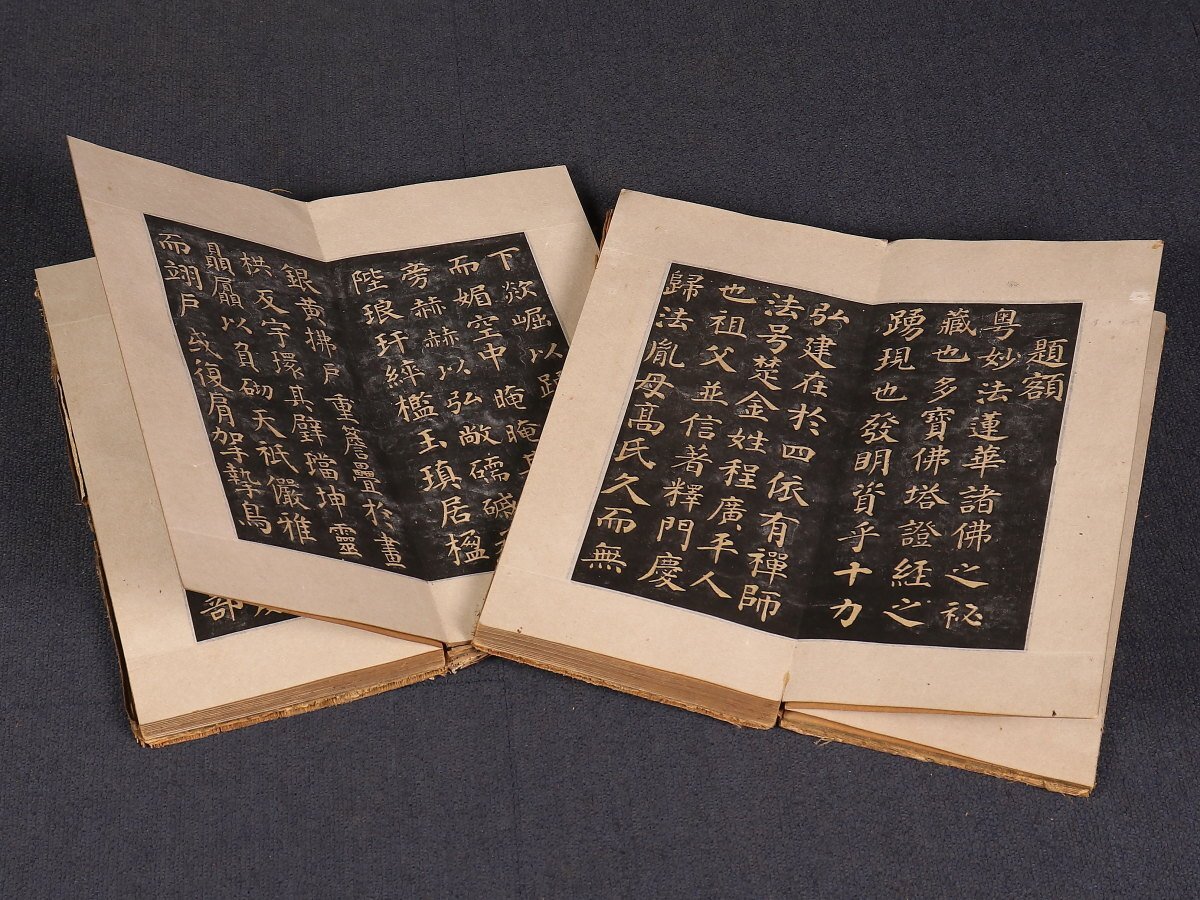 題額
粵妙法蓮華諸佛之祕
藏也多寶佛塔證經之
踴現也發明資乎十力
弘建在於四依有禪師
法号楚金姓程廣平人
也祖父並信著釋門慶
歸法胤母高氏久而無
下欻崛以踊
而媚空中晻晻
旁赫赫以弘敞礝磩
陛琅玕綷檻玉瑱居楹
銀黃拂戶重簷疊於畫
栱反宇環其璧璫坤靈
贔屭以負砌天祇儼雅
而翊戶或復肩挐摯鳥
部